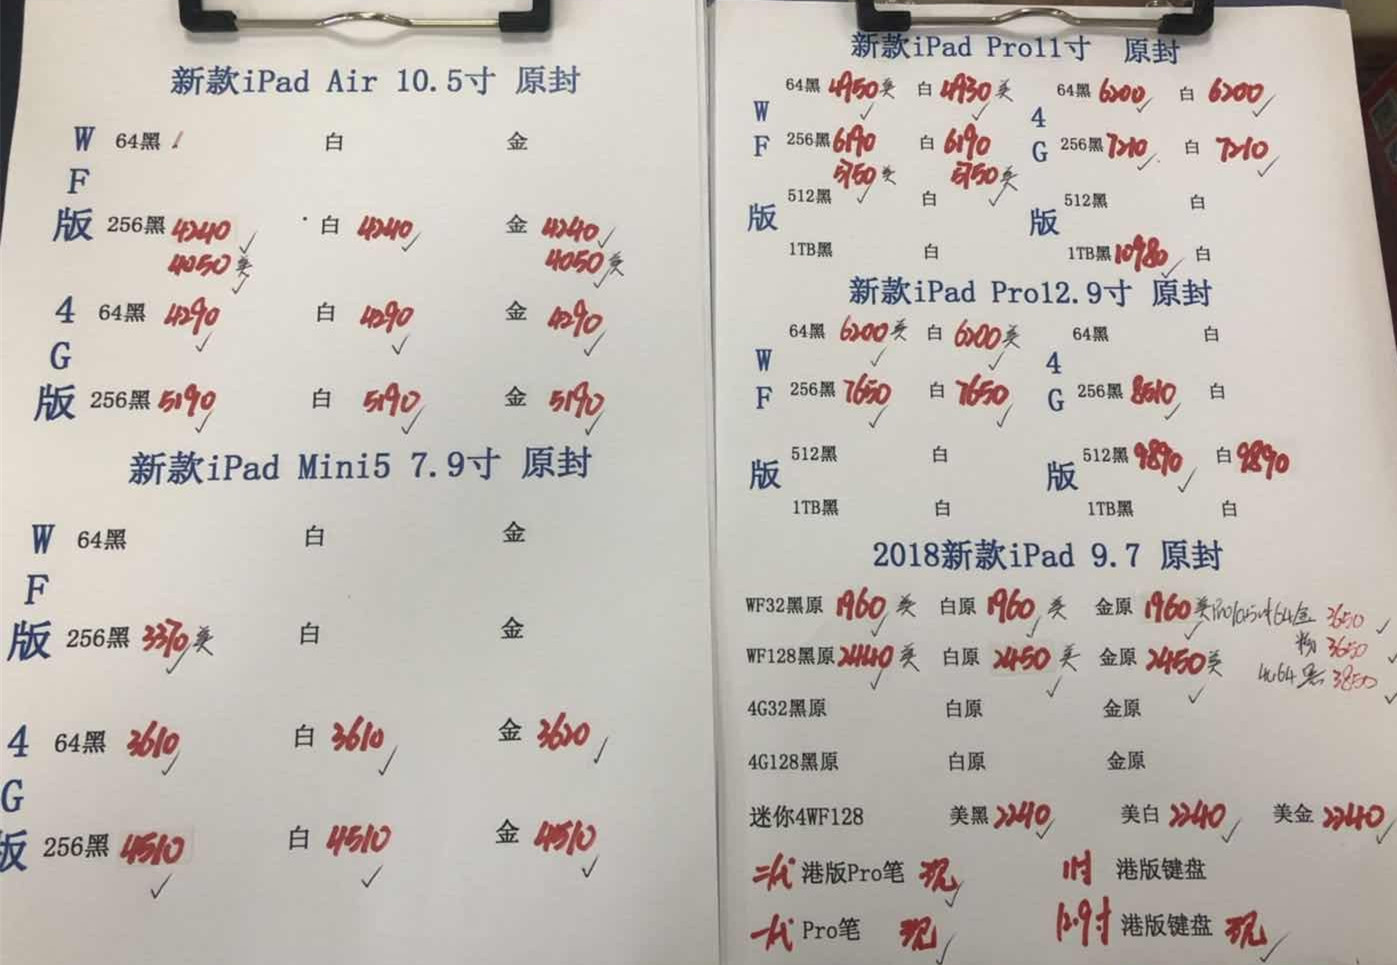 新款iPad Air 10.5寸 原封
W 64黑 白 金
F
版 256黑 4240 白 4240 金 4240
4050美 4050美
4 64黑 4290 白 4290 金 4290
G
版 256黑 5190 白 5190 金 5190
新款iPad Mini5 7.9寸 原封
W 64黑 白 金
F
版 256黑 3370美 白 金
4 64黑 3610 白 3610 金 3620
G
版 256黑 4510 白 4510 金 4510
新款iPad Pro11寸 原封
W 64黑 4950美 白 4930美 4 64黑 6200 白 6200
F 256黑 6190 白 6190 G 256黑 7210 白 7210
5750美 5750美
版 512黑 白 版 512黑 白
1TB黑 白 1TB黑 10980 白
新款iPad Pro12.9寸 原封
W 64黑 6200美 白 6200美 4 64黑 白
F 256黑 7650 白 7650 G 256黑 8510 白
版 512黑 白 版 512黑 9890 白 9890
1TB黑 白 1TB黑 白
2018新款iPad 9.7 原封
WF32黑原 1960美 白原 1960美 金原 1960美 Pro10.5寸64金 3650
粉 3650
WF128黑原 2440美 白原 2450美 金原 2450美 4G64黑 3850
4G32黑原 白原 金原
4G128黑原 白原 金原
迷你4WF128 美黑 2240 美白 2240 美金 2240
二代 港版Pro笔 现 11寸 港版键盘
一代 Pro笔 现 12.9寸 港版键盘 现